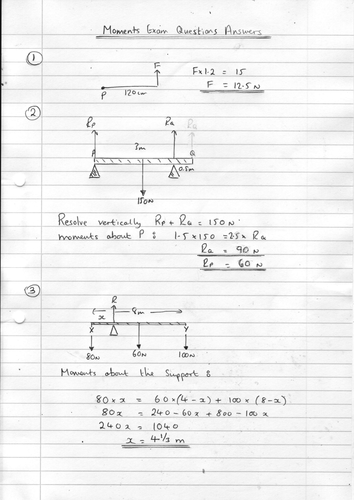 Moments Exam Questions Answers
1
F
120cm
P
F x 1.2 = 15
F = 12.5 N
2
Rp RQ RQ
P 3m Q
0.5m
150N
Resolve vertically Rp + RQ = 150 N.
moments about P : 1.5 x 150 = 2.5 x RQ
RQ = 90 N
Rp = 60 N
3
R
x 8m
X Y
80N 60N 100N
Moments about the support :
80 x x = 60 x (4 - x) + 100 x (8 - x)
80x = 240 - 60x + 800 - 100x
240x = 1040
x = 4 1/3 m